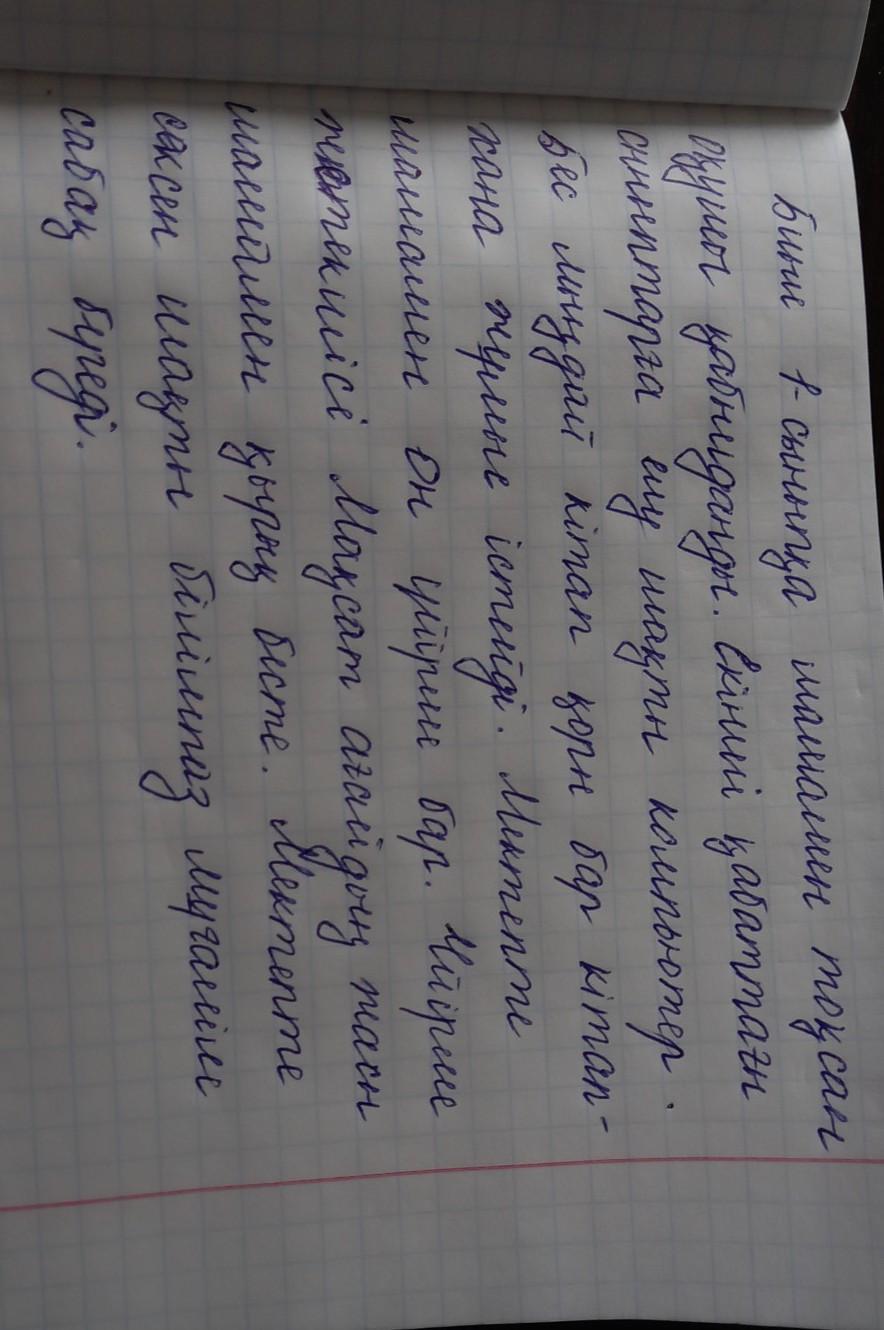 Биыл 1-сыныпқа шамамен тоқсан
оқушы қабылданды. Екінші қабаттағы
сыныптарға елу шақты компьютер.
Бес мыңдай кітап қоры бар кітап-
хана жұмыс істейді. Мектепте
шамамен он үйірме бар. Үйірме
жетекшісі Мақсат ағайдың жасы
шамамен қырық бесте. Мектепте
сексен шақты білімпаз мұғалім
сабақ береді.